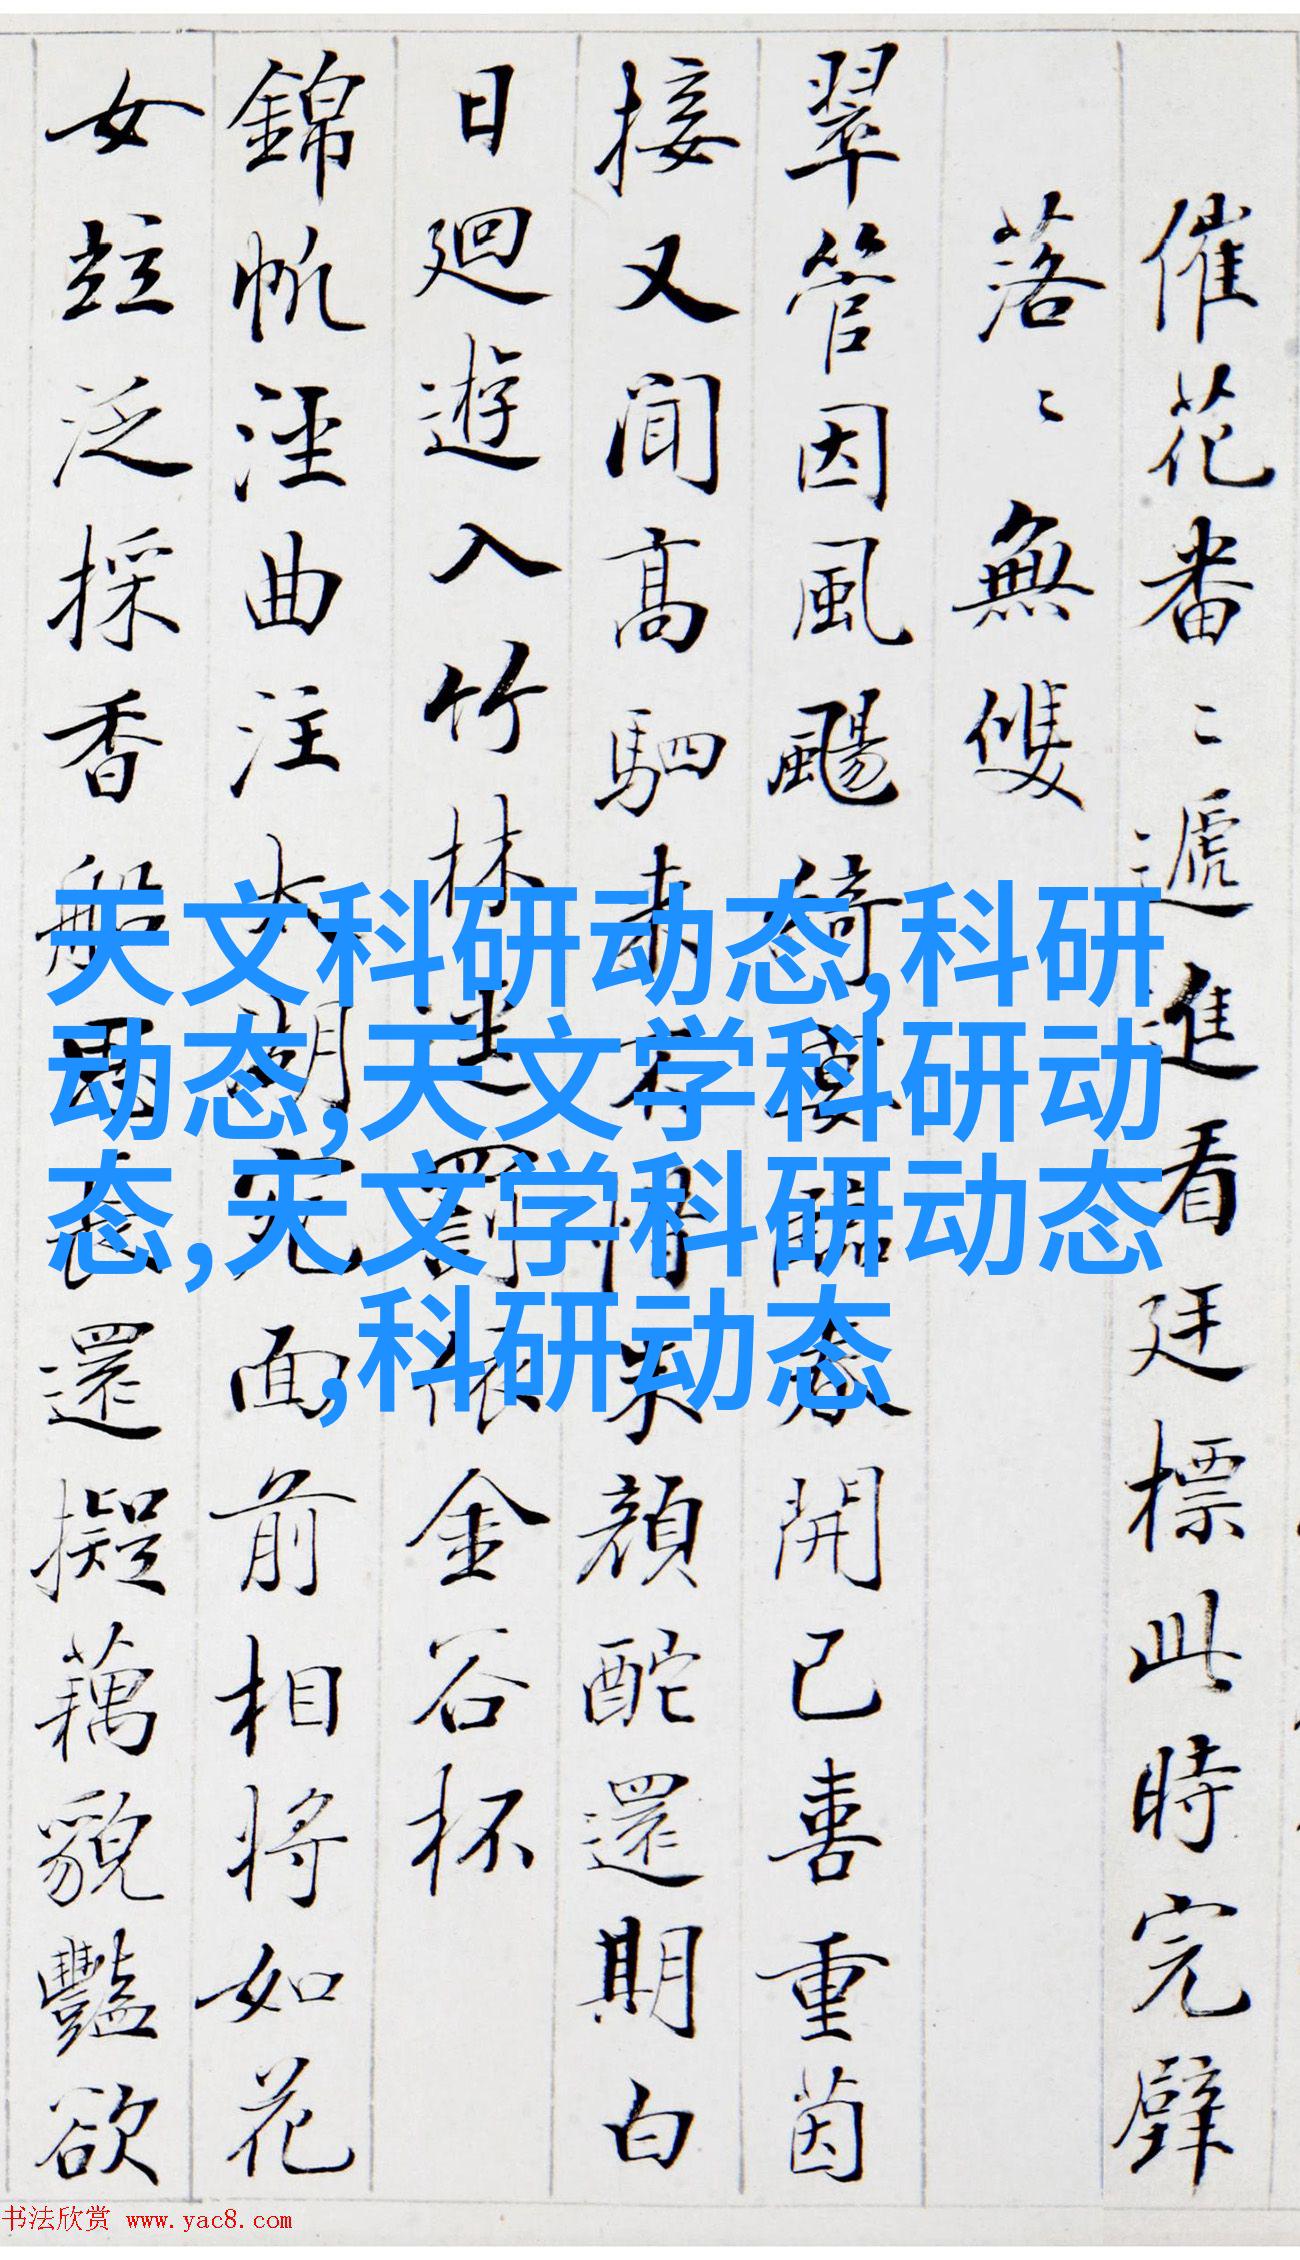 催花番〻遞進看廷標此時完璧
落〻無雙
翠管因風颺綺 開已喜重茵
接又聞高駟来 顔酡還期白
日迴遊入竹林 罰依金谷杯
錦帆 曲注太湖 面前相将如花
女 泛採香船 還擬藕貌豔欲
天文科研动态,科研
动态,天文学科研动
态,天文学科研动态
,科研动态
书法欣赏 www.yac8.com